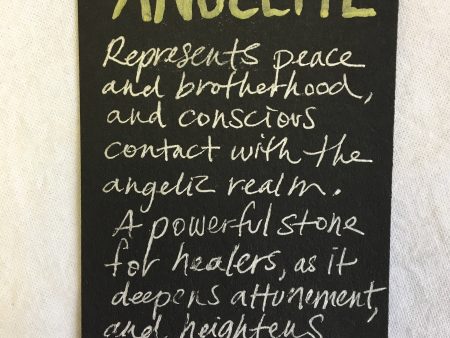 ANGELITE
Represents peace
and brotherhood,
and conscious
contact with the
angelic realm.
A powerful stone
for healers, as it
deepens attunement,
and heightens